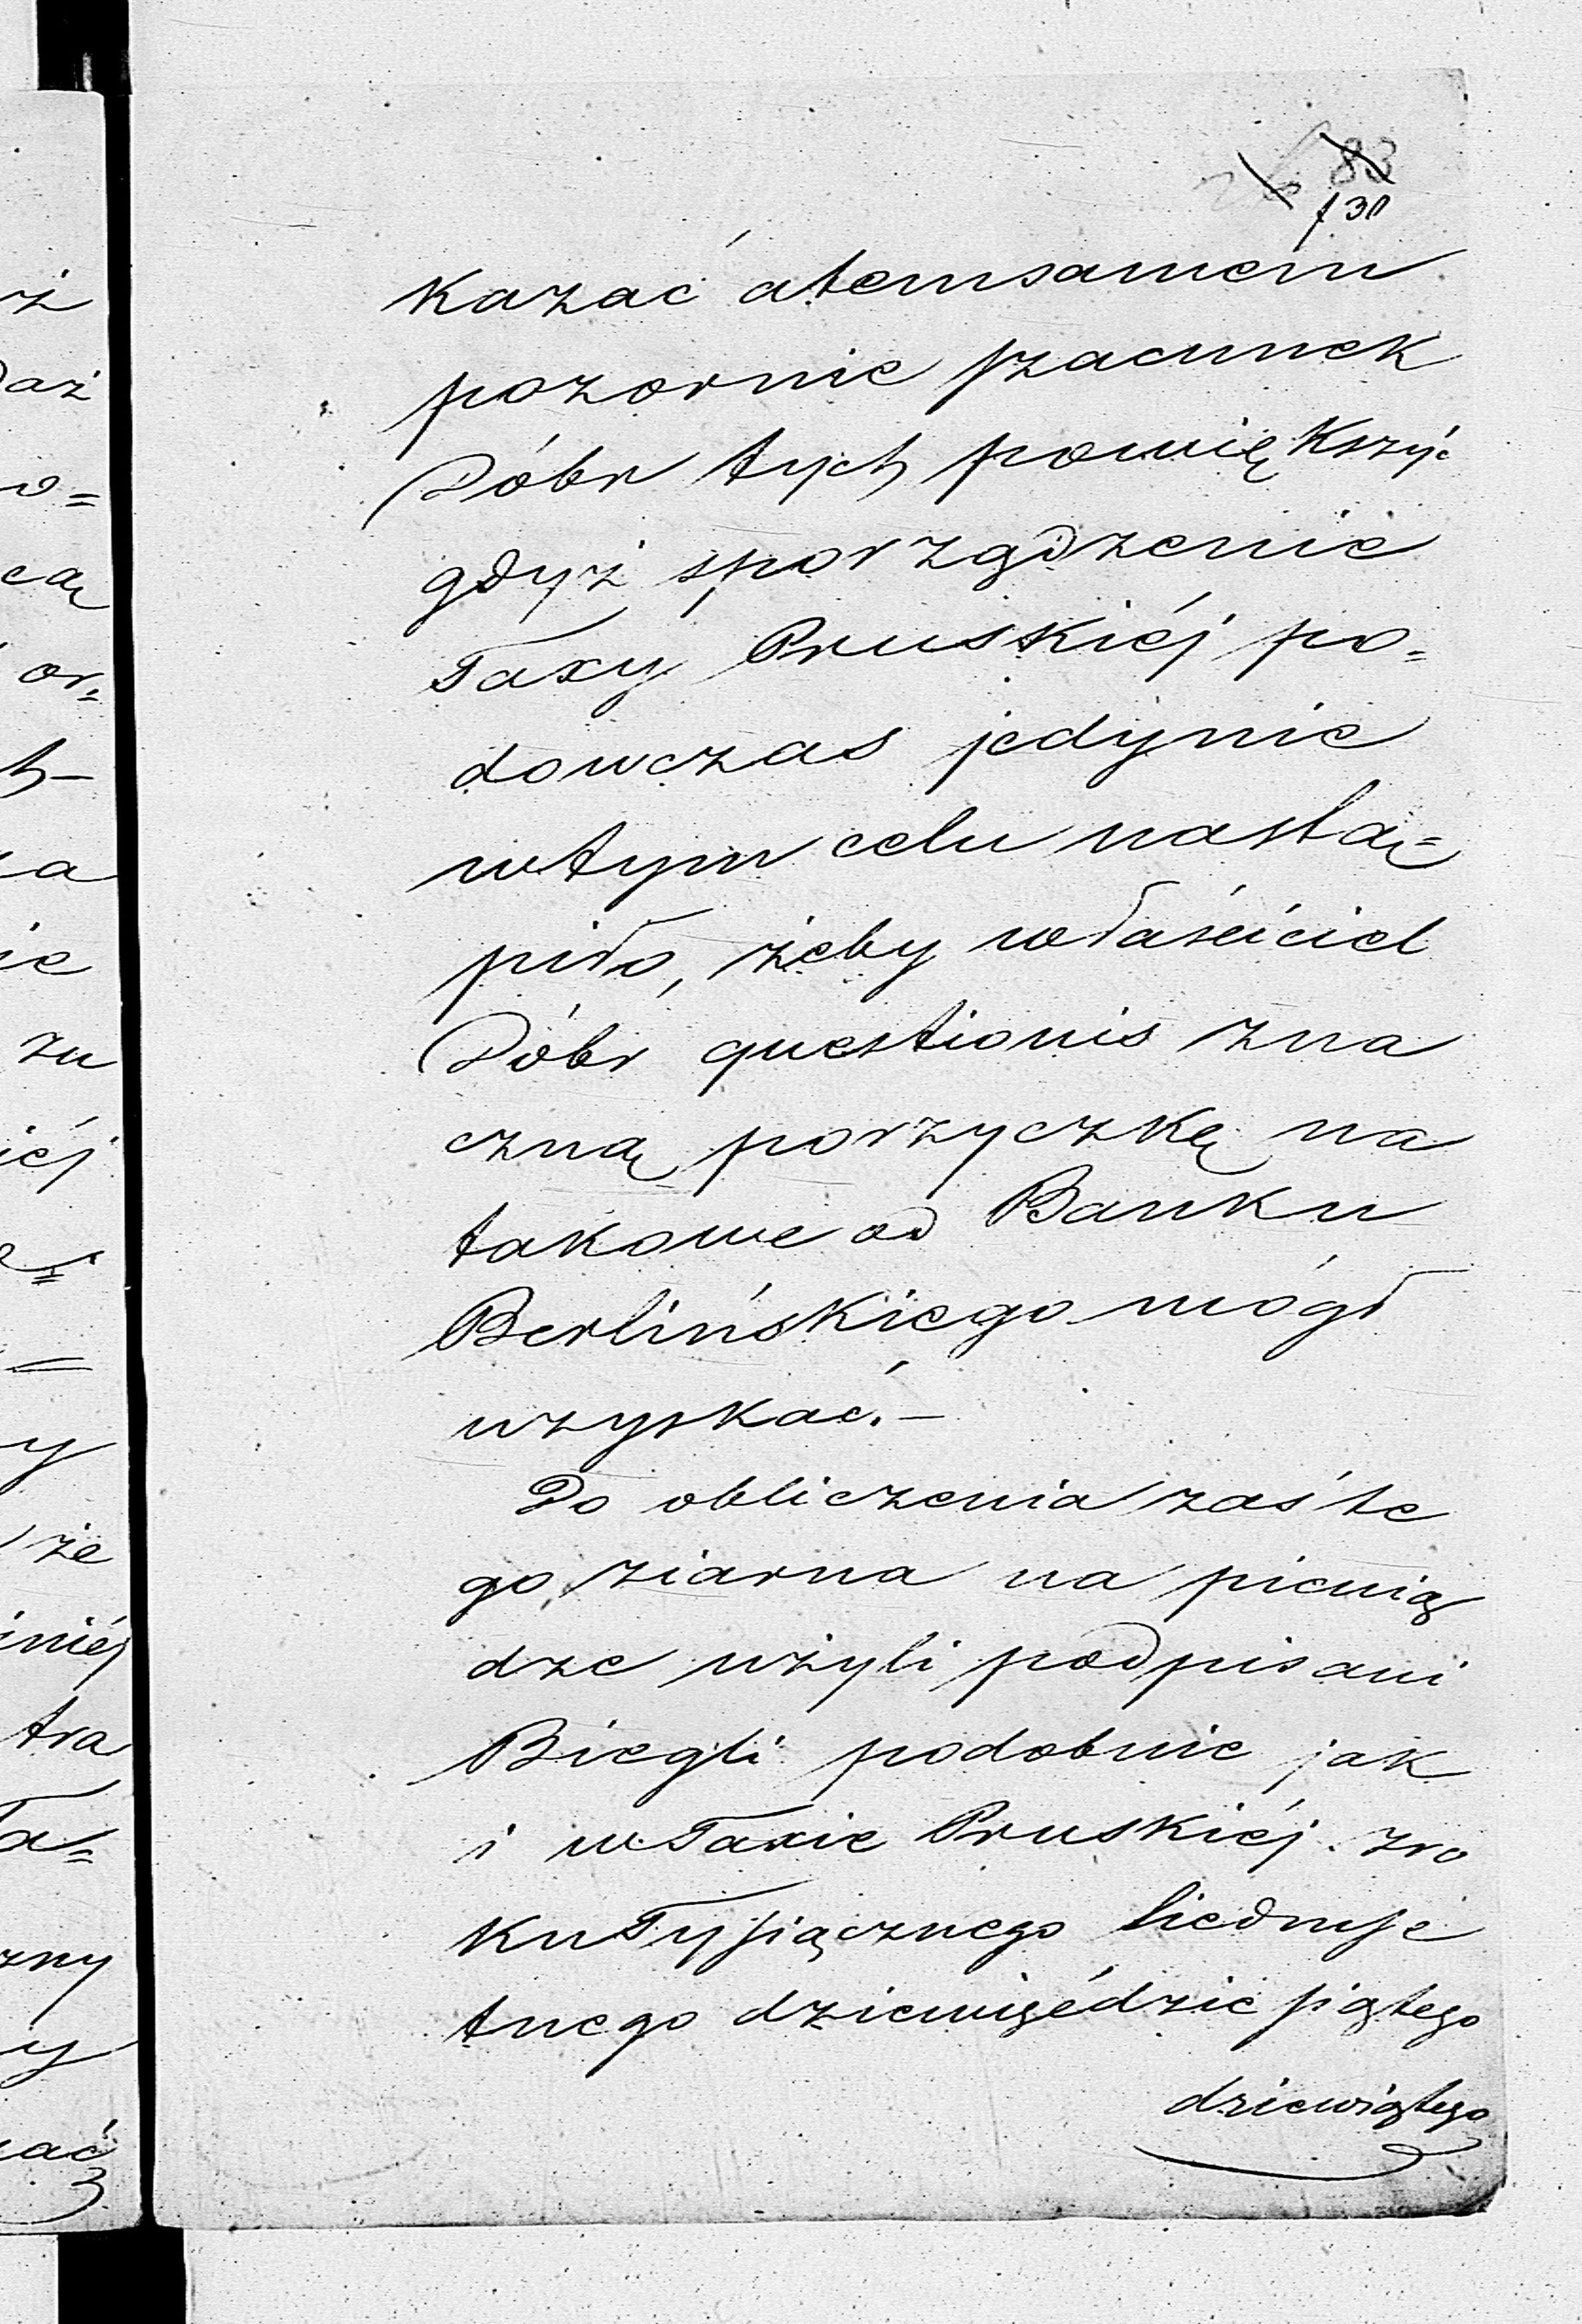 83
130
kazać atemsamem
pozornie szacunek
Dóbr tych powiększyć
gdyż sporządzenie
Taxy Pruskiéj po=
dowczas jedynie
wtym celu nastą=
piło, żeby właściciel
Dóbr questionis zna
czną porzyczkę na
takowe od Banku
Berlińskiego mógł
uzyskać.—
Do obliczenia zaś te
go ziarna na pienią
dze użyli podpisani
Biegli podobnie jak
i wTaxie Pruskiéj zro
ku Tysiącznego siedmse
tnego dziewięédzie siątego
dziewiątego